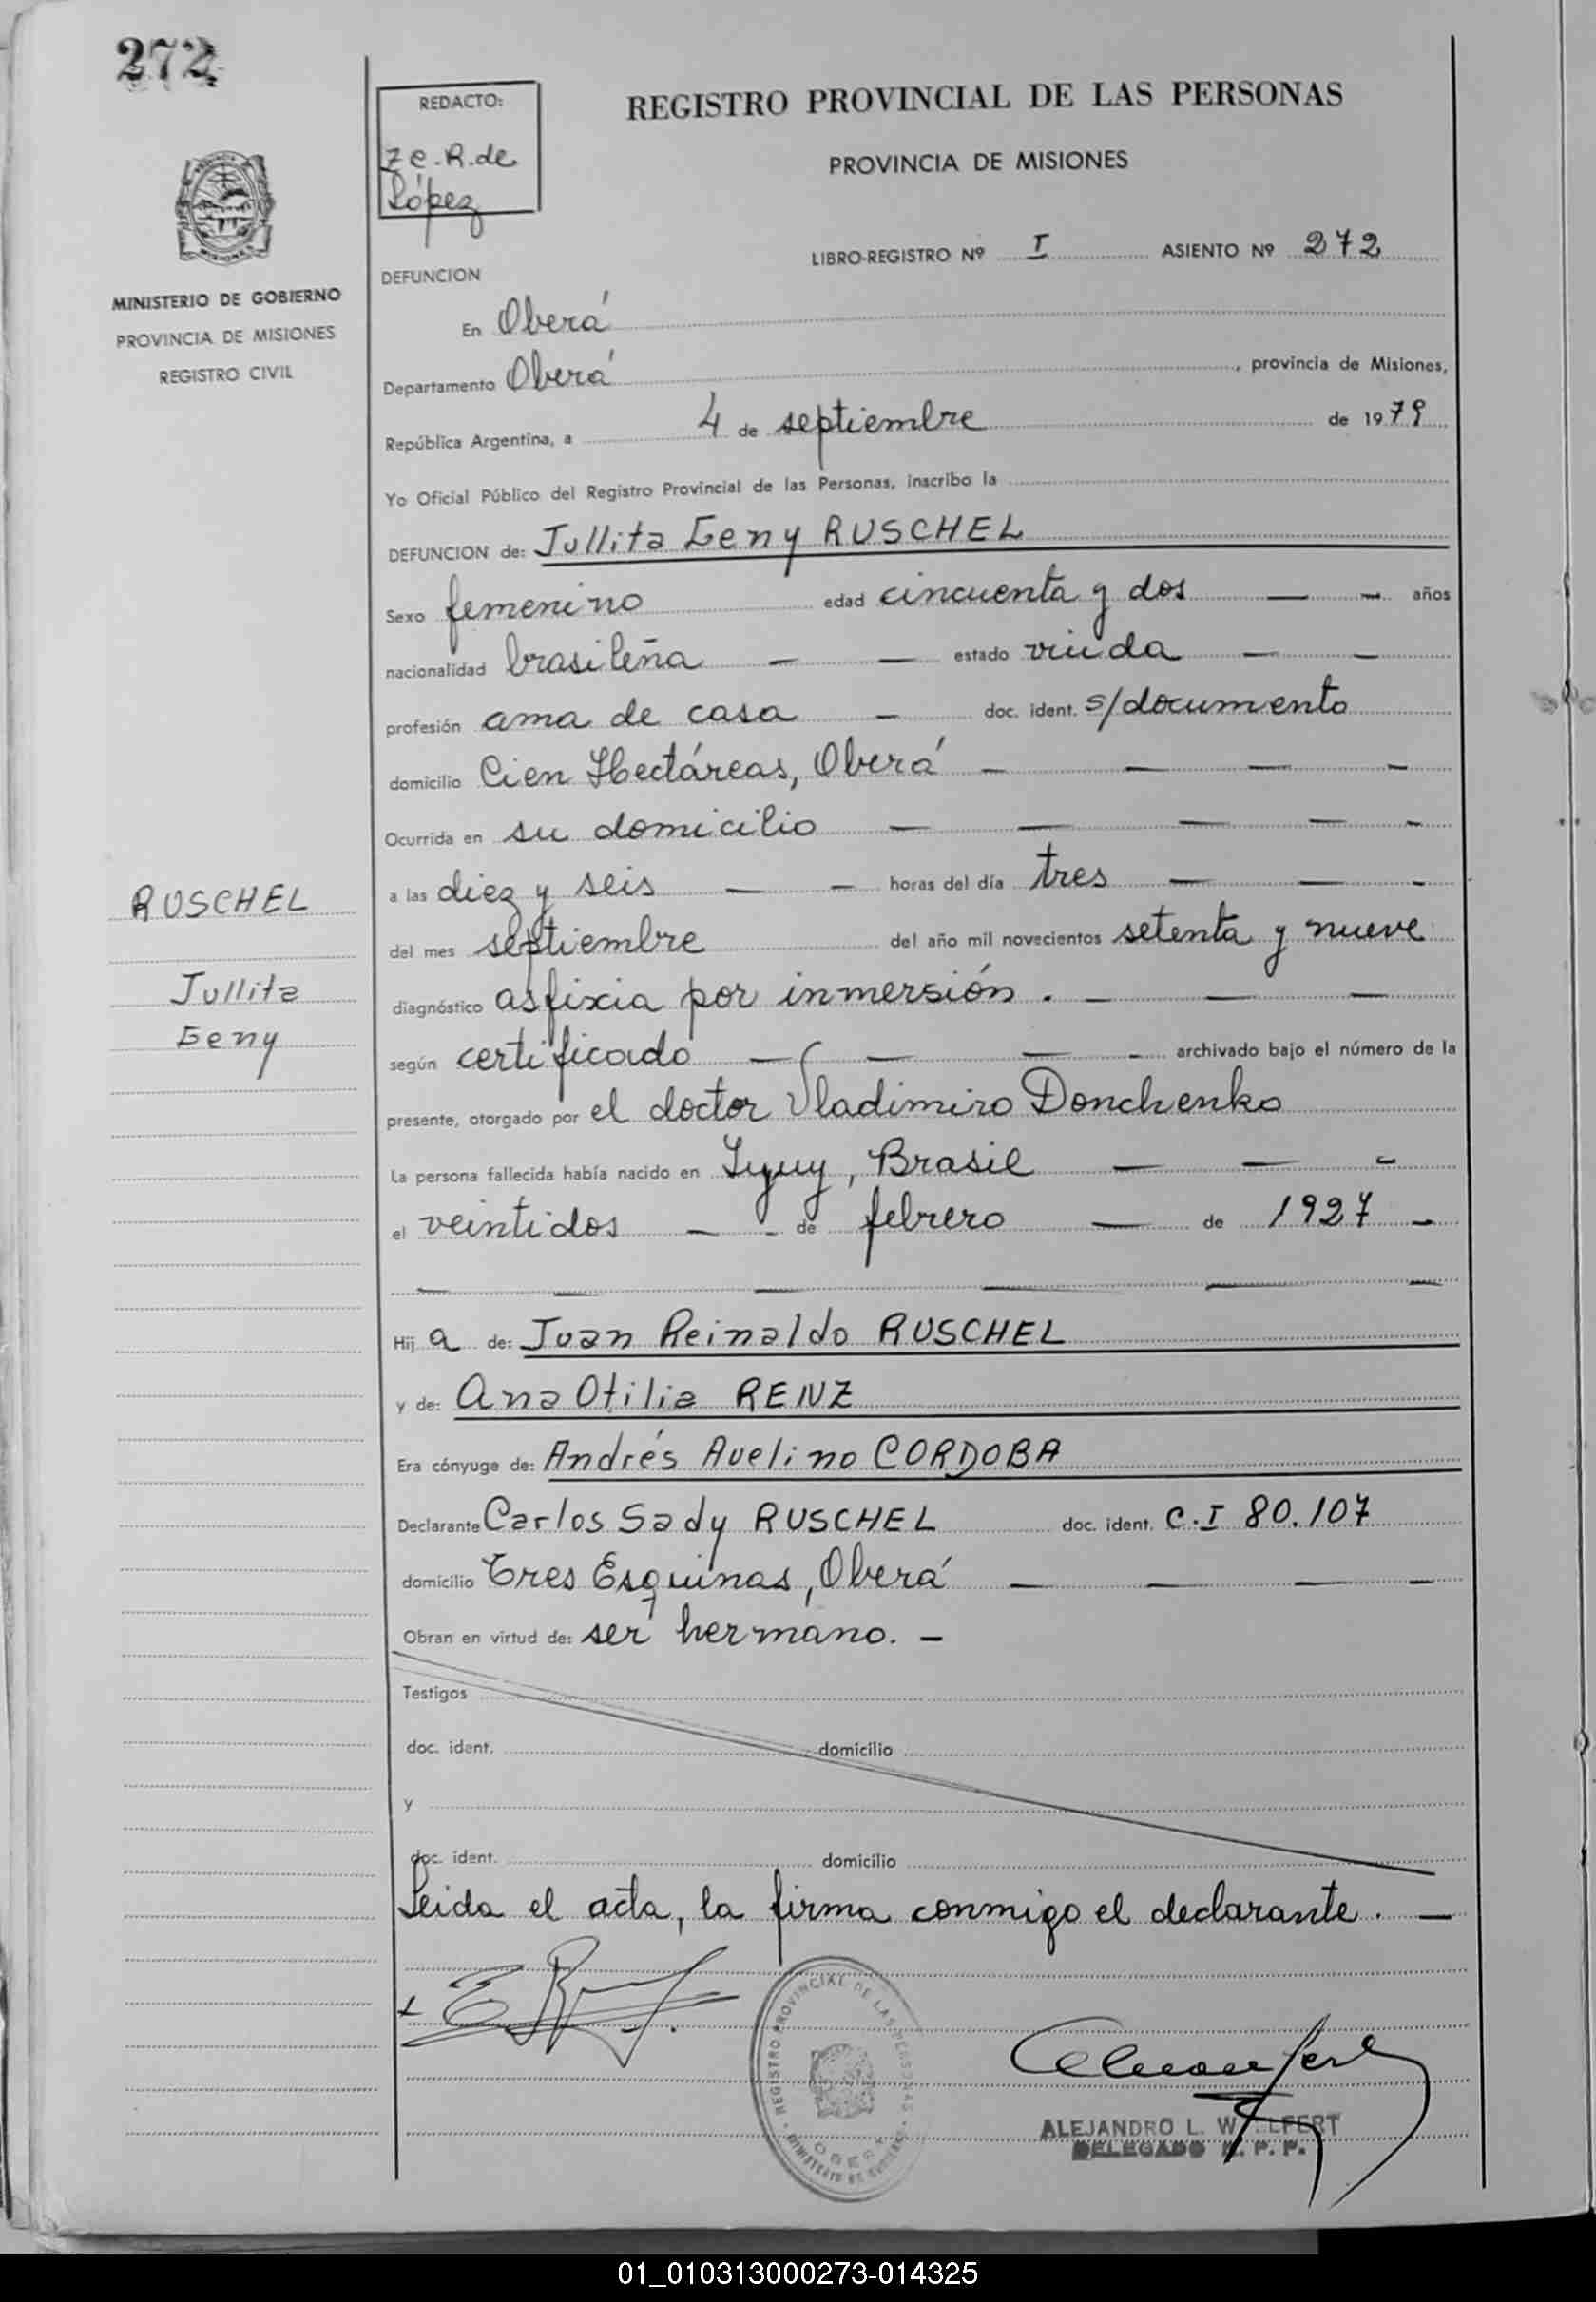 272
REDACTO:
Z e. R. de
López
REGISTRO PROVINCIAL DE LAS PERSONAS
PROVINCIA DE MISIONES
LIBRO-REGISTRO Nº I ASIENTO Nº 272
MISIONES
MINISTERIO DE GOBIERNO
PROVINCIA DE MISIONES
REGISTRO CIVIL
DEFUNCION
En Oberá
Departamento Oberá, provincia de Misiones,
República Argentina, a 4 de septiembre de 1979
Yo Oficial Público del Registro Provincial de las Personas, inscribo la
DEFUNCION de: Jullita Geny RUSCHEL
Sexo femenino edad cincuenta y dos — — años
nacionalidad brasileña — — estado viuda — —
profesión ama de casa — doc. ident. s/documento
domicilio Cien Hectáreas, Oberá — — — —
Ocurrida en su domicilio — — — — —
a las diez y seis — — horas del día tres — — —
del mes septiembre del año mil novecientos setenta y nueve
diagnóstico asfixia por inmersión. — — —
según certificado — — — — archivado bajo el número de la
presente, otorgado por el doctor Vladimiro Donchenko
La persona fallecida había nacido en Iyuy, Brasil — — —
el veintidos — — de febrero — de 1927 —
— — — — —
Hij a de: Juan Reinaldo RUSCHEL
y de: Ana Otilia RENZ
Era cónyuge de: Andrés Avelino CORDOBA
Declarante Carlos Sady RUSCHEL doc. ident. C.I 80.107
domicilio Tres Esquinas, Oberá — — — —
Obran en virtud de: ser hermano. —
Testigos
doc. ident. domicilio
y
doc. ident. domicilio
Leida el acta, la firma conmigo el declarante. —
RUSCHEL
Jullita
Geny
REGISTRO PROVINCIAL DE LAS PERSONAS
MINISTERIO DE GOBIERNO
OBERA
ALEJANDRO L.
DELEGADO R. P. P.
01_010313000273-014325